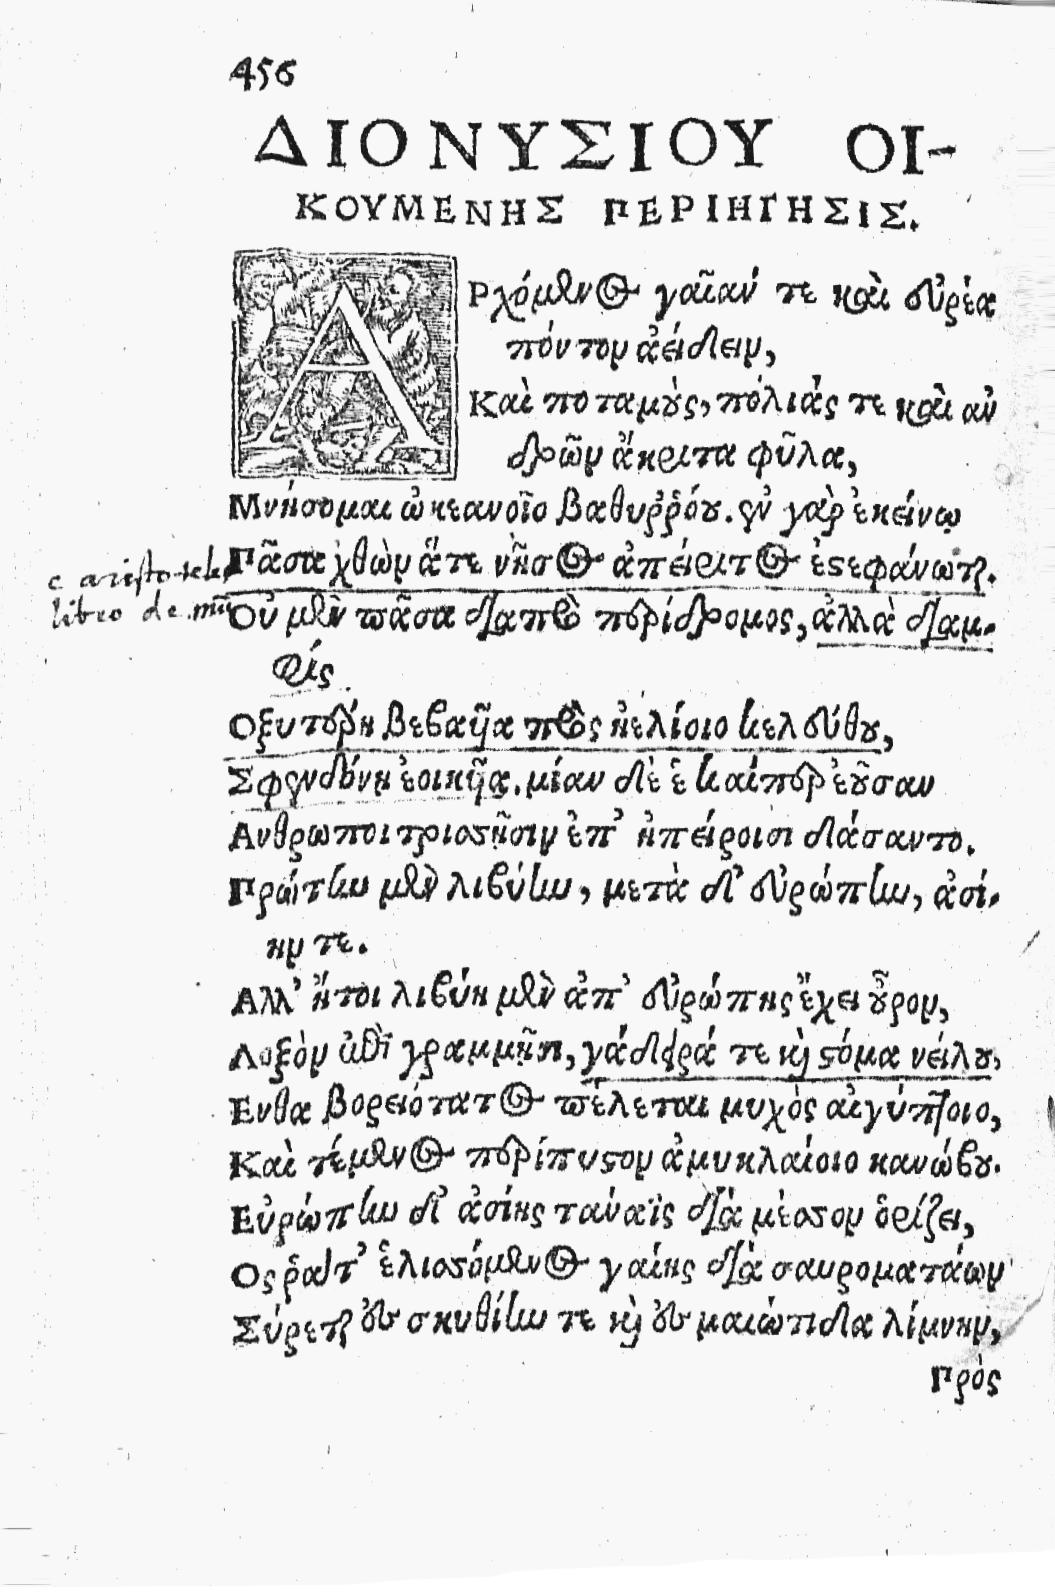 456
ΔΙΟΝΥΣΙΟΥ ΟΙ-
ΚΟΥΜΕΝΗΣ ΠΕΡΙΗΓΗΣΙΣ.
ΑΡχόμενος γαῖαν τε καὶ εὐρέα
πόντον ἀείδειν,
Καὶ ποταμοὺς, πόλιάς τε καὶ ἀν
δρῶν ἄκριτα φῦλα,
Μνήσομαι ὠκεανοῖο βαθυῤῥόου. ἐν γὰρ ἐκείνῳ
Πᾶσα χθὼν ἅτε νῆσος ἀπείριτος ἐστεφάνωται.
Οὐ μὲν πᾶσα διαπρὸ περίδρομος, ἀλλὰ διαμ-
φὶς
Οξυτέρη βεβαῦῖα πρὸς ἠελίοιο κελεύθου,
Σφενδόνῃ ἐοικῦῖα. μίαν δὲ ἑ καίπερ ἐοῦσαν
Ανθρωποι τρισσῇσιν ἐπ' ἠπείροισι δάσαντο.
Πρώτην μὲν λιβύην, μετὰ δ' εὐρώπην, ἀσί-
ην τε.
Αλλ' ἤτοι λιβύη μὲν ἀπ' εὐρώπης ἔχει οὖρον,
Λοξὸν ἐπὶ γραμμῇσι, γάδειρά τε καὶ στόμα νείλου,
Ενθα βορειότατος πέλεται μυχὸς αἰγύπτοιο,
Καὶ τέμενος περίπυστον ἀμυκλαίοιο κανώβου.
Εὐρώπην δ' ἀσίης τάναϊς διὰ μέσσον ὁρίζει,
Ος ῥά τ' ἑλισσόμενος γαίης διὰ σαυροματάων
Σύρεται ἐς σκυθίην τε καὶ ἐς μαιώτιδα λίμνην,
Πρὸς
c aristotele
libro de mũ